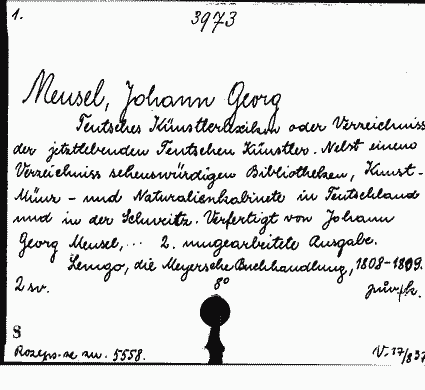 1.
3973
Meusel, Johann Georg
Teutsches Künstlerlexikon oder Verzeichniss
der jetztlebenden Teutschen Künstler. Nebst einem
Verzeichniss sehenswürdigen Bibliotheken, Kunst-
Münz- und Naturalienkabinete in Teutschland
und in der Schweitz. Verfertigt von Johann
Georg Meusel,... 2. umgearbeitete Ausgabe.
Lemgo, die Meyersche Buchhandlung, 1808-1809.
2 sv. 8°
8
5558.